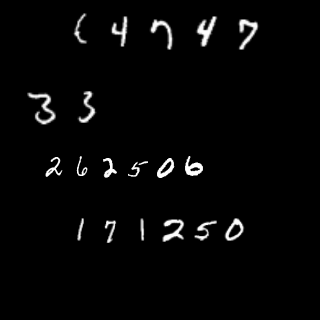 4 7 4 7
3 3
2 6 2 5 0 6
1 7 1 2 5 0